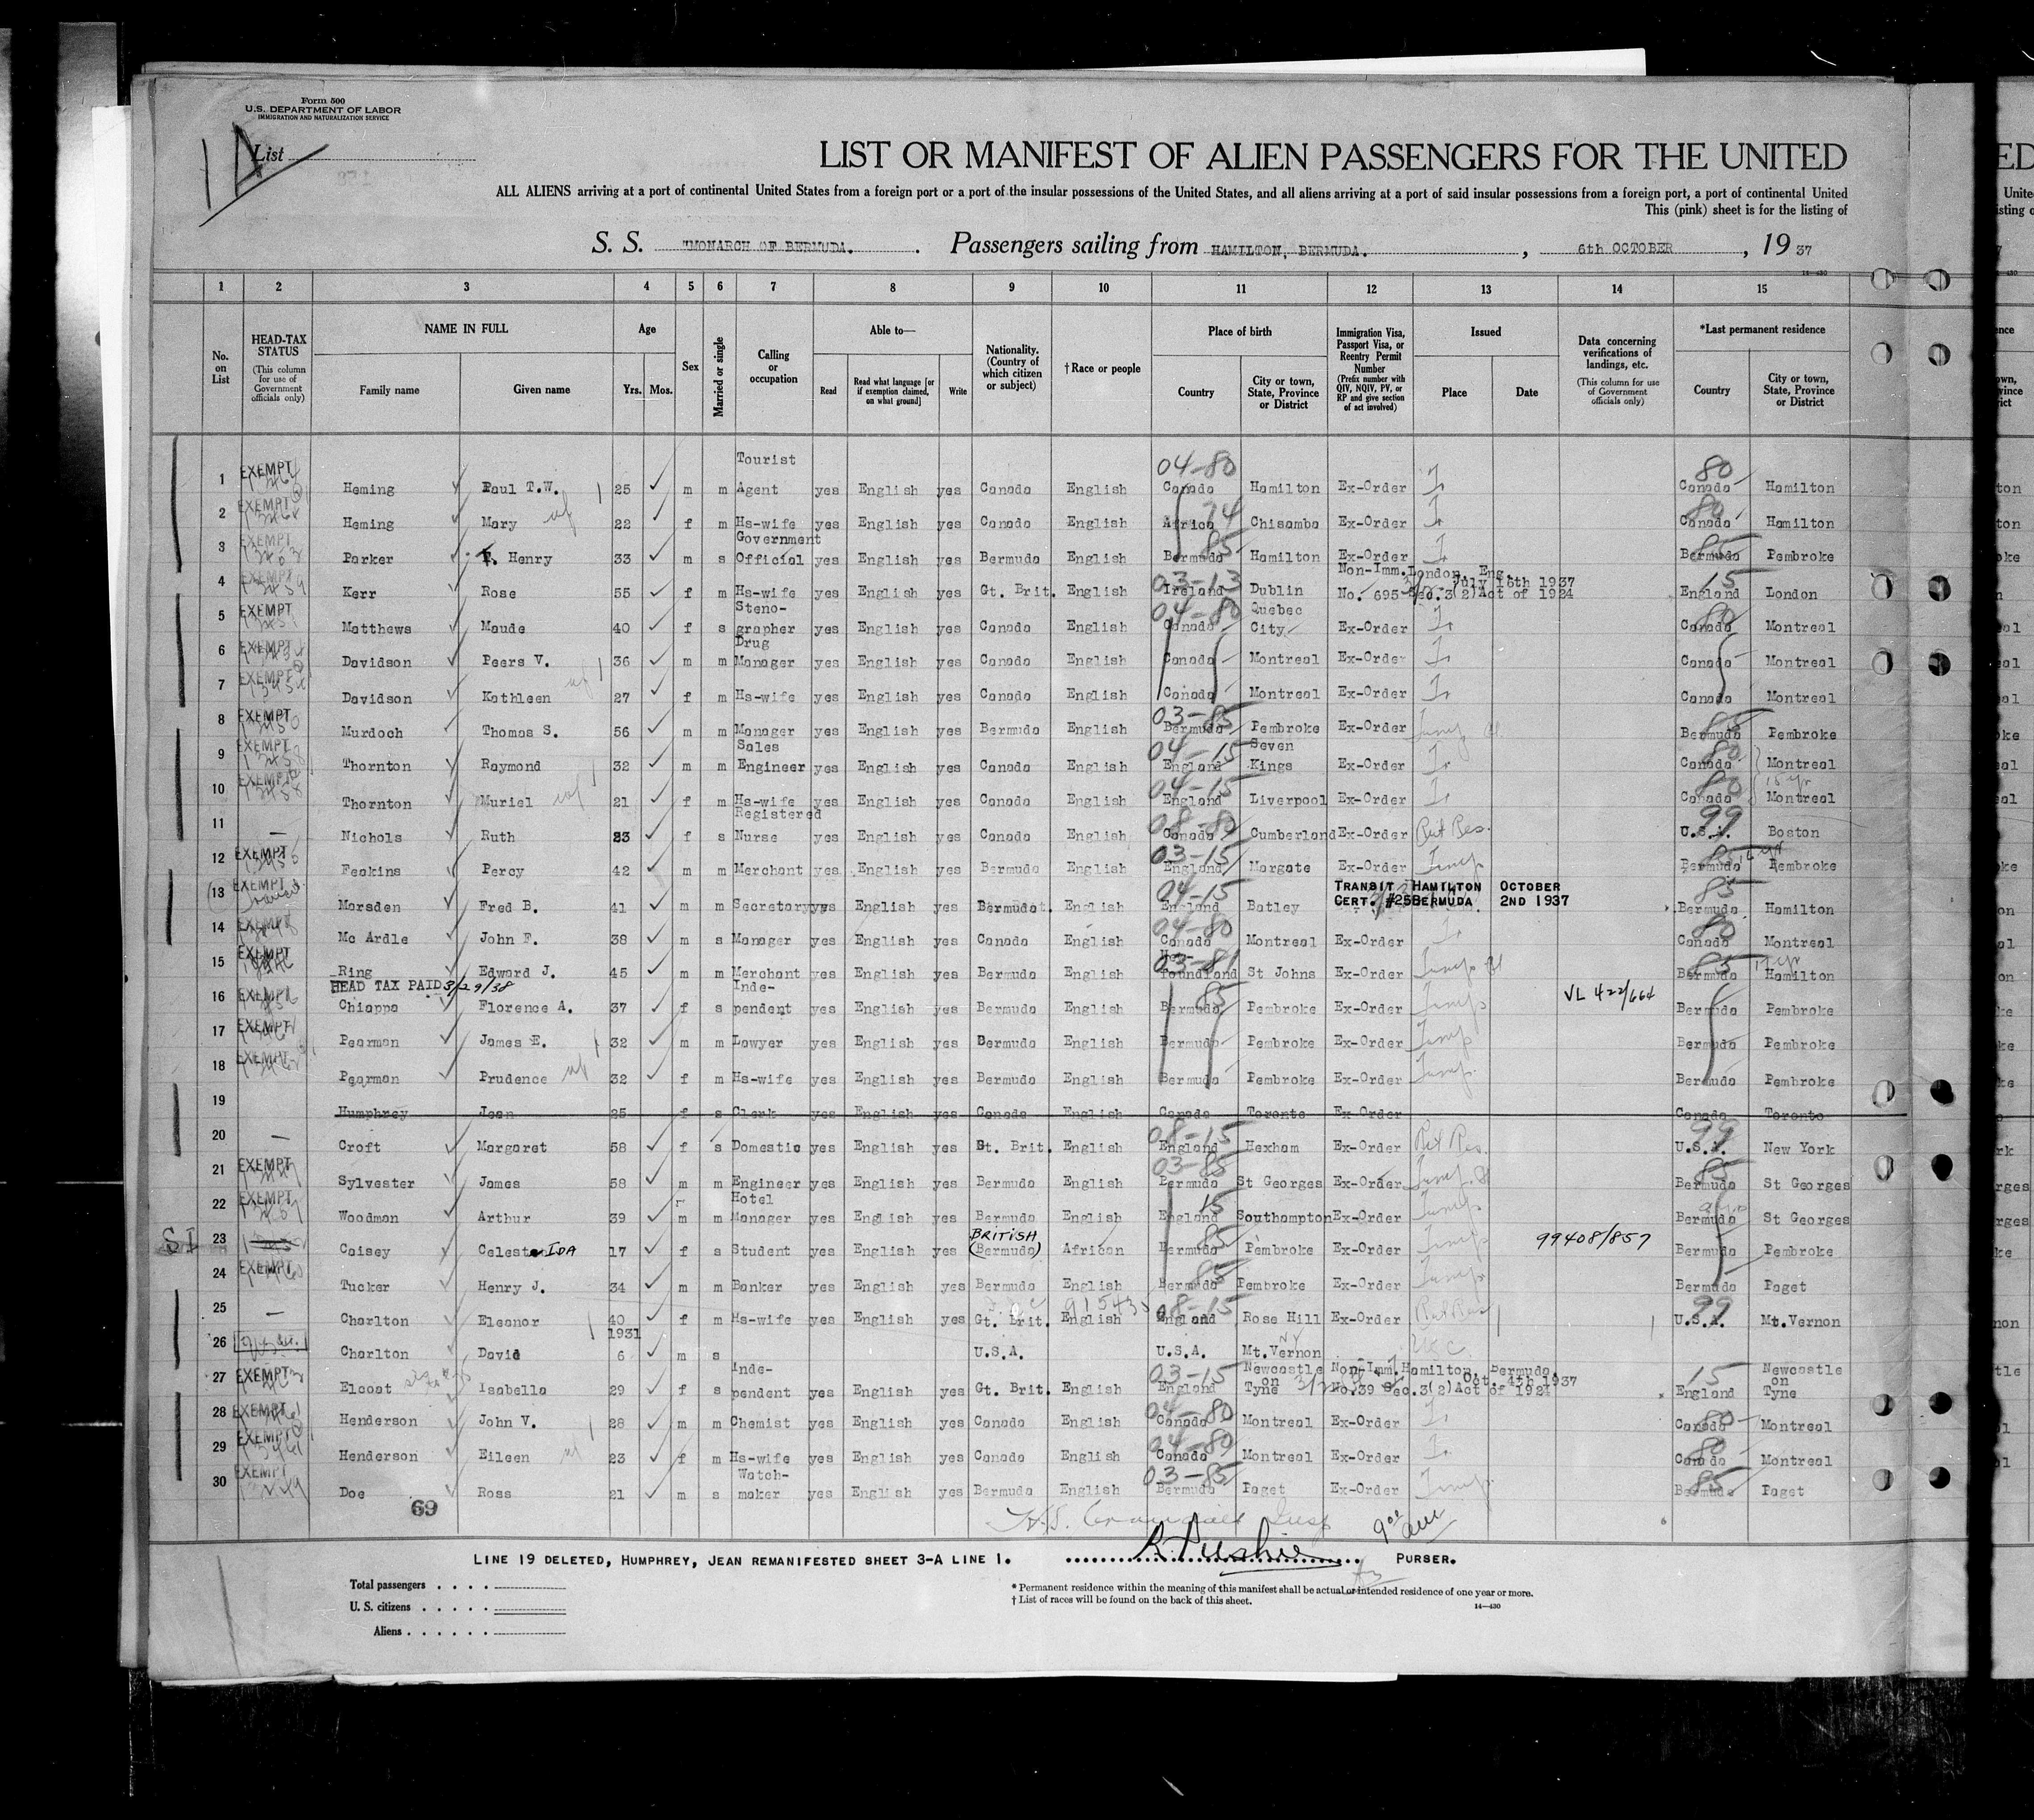 Form 500
U.S. DEPARTMENT OF LABOR
IMMIGRATION AND NATURALIZATION SERVICE
1A
List
LIST OR MANIFEST OF ALIEN PASSENGERS FOR THE UNITED
ALL ALIENS arriving at a port of continental United States from a foreign port or a port of the insular possessions of the United States, and all aliens arriving at a port of said insular possessions from a foreign port, a port of continental United
This (pink) sheet is for the listing of
S. S. "MONARCH OF BERMUDA. Passengers sailing from HAMILTON, BERMUDA. , 6th OCTOBER , 19 37
14—430
1 2 3 4 5 6 7 8 9 10 11 12 13 14 15
No. on List
HEAD-TAX STATUS (This column for use of Government officials only)
NAME IN FULL
Family name Given name
Age
Yrs. Mos.
Sex
Married or single
Calling or occupation
Able to—
Read Read what language [or if exemption claimed, on what ground] Write
Nationality. (Country of which citizen or subject)
†Race or people
Place of birth
Country City or town, State, Province or District
Immigration Visa, Passport Visa, or Reentry Permit Number (Prefix number with QIV, NQIV, PV, or RP and give section of act involved)
Issued
Place Date
Data concerning verifications of landings, etc. (This column for use of Government officials only)
*Last permanent residence
Country City or town, State, Province or District
1 EXEMPT Heming Paul T.W. 25 m m Tourist Agent yes English yes Canada English 04-80 Canada Hamilton Ex-Order 80 Canada Hamilton
2 EXEMPT Heming Mary 22 f m Hs-wife yes English yes Canada English 74 Africa Chisamba Ex-Order 80 Canada Hamilton
3 EXEMPT Parker F. Henry 33 m s Government Official yes English yes Bermuda English 85 Bermuda Hamilton Ex-Order 85 Bermuda Pembroke
4 EXEMPT Kerr Rose 55 f m Hs-wife yes English yes Gt. Brit. English 03-13 Ireland Dublin Non-Imm. London, Eng. No. 695 July 16th 1937 Sec.3(2)Act of 1924 15 England London
5 EXEMPT Matthews Maude 40 f s Steno-grapher yes English yes Canada English 04-80 Canada Quebec City Ex-Order 80 Canada Montreal
6 EXEMPT Davidson Peers V. 36 m m Drug Manager yes English yes Canada English Canada Montreal Ex-Order Canada Montreal
7 EXEMPT Davidson Kathleen 27 f m Hs-wife yes English yes Canada English Canada Montreal Ex-Order Canada Montreal
8 EXEMPT Murdoch Thomas S. 56 m m Manager yes English yes Bermuda English 03-85 Bermuda Pembroke Ex-Order 85 Bermuda Pembroke
9 EXEMPT Thornton Raymond 32 m m Sales Engineer yes English yes Canada English 04-15 England Seven Kings Ex-Order 80 Canada Montreal
10 EXEMPT Thornton Muriel 21 f m Hs-wife yes English yes Canada English 04-15 England Liverpool Ex-Order 80 Canada Montreal
11 — Nichols Ruth 23 f s Registered Nurse yes English yes Canada English 08-80 Canada Cumberland Ex-Order Ret Res. 99 U.S.A. Boston
12 EXEMPT Feakins Percy 42 m m Merchant yes English yes Bermuda English 03-15 England Margate Ex-Order Temp 85 Bermuda Pembroke
13 EXEMPT Marsden Fred B. 41 m m Secretary yes English yes English 04-15 England Batley TRANSIT CERT. #25 HAMILTON BERMUDA OCTOBER 2ND 1937 85 Bermuda Hamilton
14 EXEMPT Mc Ardle John F. 38 m s Manager yes English yes Canada English 04-80 Canada Montreal Ex-Order 80 Canada Montreal
15 EXEMPT Ring Edward J. 45 m m Merchant yes English yes Bermuda English 03-81 Newfoundland St Johns Ex-Order Temp 85 Bermuda Hamilton
HEAD TAX PAID 3/29/38
16 EXEMPT Chiappa Florence A. 37 f s Inde-pendent yes English yes Bermuda English 85 Bermuda Pembroke Ex-Order Temp VL 422/664 Bermuda Pembroke
17 EXEMPT Pearman James E. 32 m m Lawyer yes English yes Bermuda English Bermuda Pembroke Ex-Order Temp Bermuda Pembroke
18 EXEMPT Pearman Prudence 32 f m Hs-wife yes English yes Bermuda English Bermuda Pembroke Ex-Order Temp. Bermuda Pembroke
19 Humphrey Jean 25 f s Clerk yes English yes Canada English Canada Toronto Ex-Order Canada Toronto
20 — Croft Margaret 58 f s Domestic yes English yes Gt. Brit. English 08-15 England Hexham Ex-Order Ret Res. 99 U.S.A. New York
21 EXEMPT Sylvester James 58 m m Engineer yes English yes Bermuda English 03-85 Bermuda St Georges Ex-Order Temp. 85 Bermuda St Georges
22 EXEMPT Woodman Arthur 39 m m Hotel Manager yes English yes Bermuda English 15 England Southampton Ex-Order Temp Bermuda St Georges
SI 23 Caisey Celeste IDA 17 f s Student yes English yes BRITISH (Bermuda) African 85 Bermuda Pembroke Ex-Order Temp 99408/857 Bermuda Pembroke
24 EXEMPT Tucker Henry J. 34 m m Banker yes English yes Bermuda English 85 Bermuda Pembroke Ex-Order Temp Bermuda Paget
25 — Charlton Eleanor 40 f m Hs-wife yes English yes Gt. Brit. English 08-15 England Rose Hill Ex-Order Ret Res 99 U.S.A. Mt.Vernon
26 Charlton David 1931 6 m s U.S.A. U.S.A. NY Mt.Vernon USC
27 EXEMPT Elcoat Isabella 29 f s Inde-pendent yes English yes Gt. Brit. English 03-15 England Newcastle on Tyne Non-Imm. Hamilton, Bermuda. No.39 Oct. 4th 1937 Sec.3(2)Act of 1924 15 England Newcastle on Tyne
28 EXEMPT Henderson John V. 28 m m Chemist yes English yes Canada English 04-80 Canada Montreal Ex-Order 80 Canada Montreal
29 EXEMPT Henderson Eileen 23 f m Hs-wife yes English yes Canada English 04-80 Canada Montreal Ex-Order 80 Canada Montreal
30 EXEMPT Doe Ross 21 m s Watch-maker yes English yes Bermuda English 03-85 Bermuda Paget Ex-Order Temp. 85 Bermuda Paget
69
LINE 19 DELETED, HUMPHREY, JEAN REMANIFESTED SHEET 3-A LINE 1. PURSER.
Total passengers
U. S. citizens
Aliens
* Permanent residence within the meaning of this manifest shall be actual or intended residence of one year or more.
† List of races will be found on the back of this sheet.
14—430